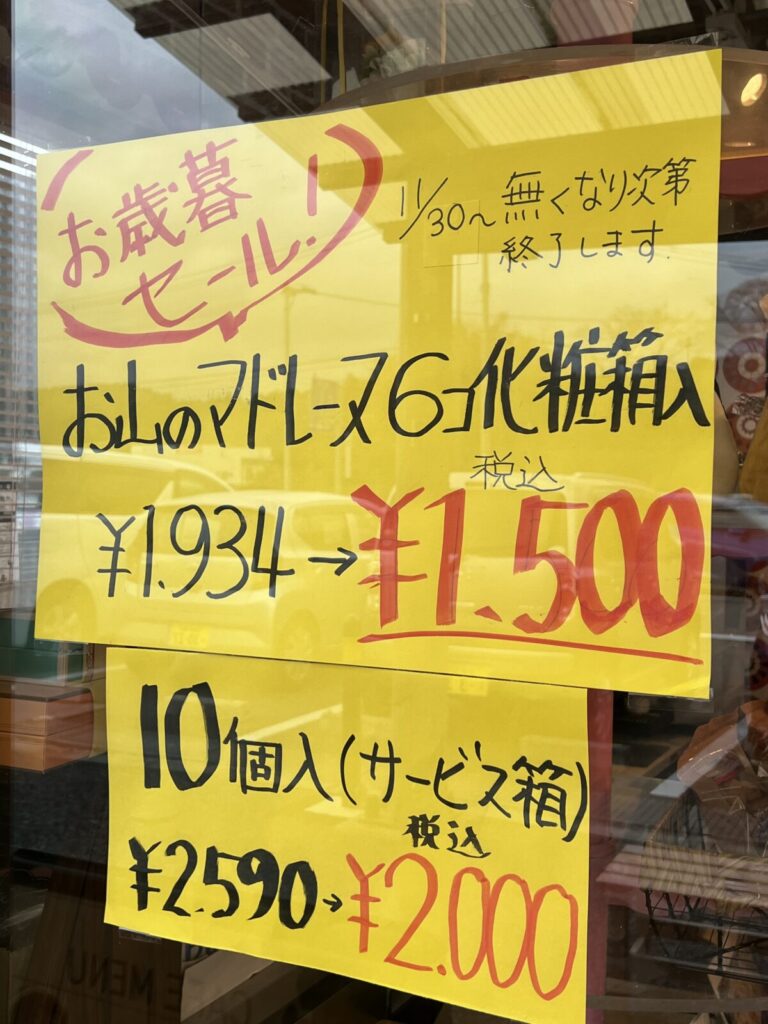 お歳暮
セール!
11/30〜無くなり次第
終了します.
お山のマドレーヌ6コ化粧箱入
税込
¥1.934→¥1.500
10個入(サービス箱)
税込
¥2.590→¥2.000
MENU